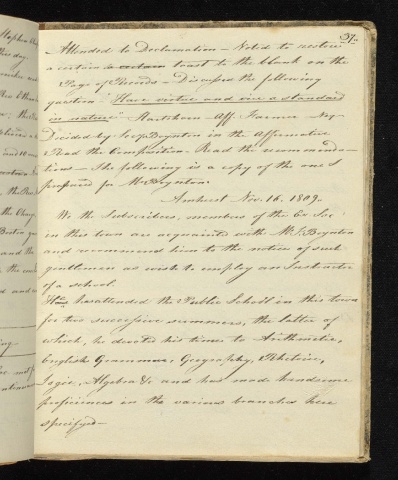 37.
Attended to Declamation – Voted to restore
a certain a certain toast to the blank on the
Page of Records – Discussed the following
question "Have virtue and vice a standard
in nature" – Aff. Farmer Neg
Decided by Boynton in the Affirmative
Read the Composition – Read the recommenda-
tions – The following is a copy of the one I
prepared for Mr Boynton.
Amherst Nov. 16. 1809.
We the Subscribers, members of the Soc
in this town are acquainted with Mr. Boynton
and recommend him to the notice of such
gentlemen as wish to employ an Instructor
of a school.
has attended the Public School in this town
for two successive summers, the latter of
which, he devoted his time to Arithmetic,
English Grammar, Geography, Rhetoric,
Logic, Algebra &c and has made handsome
proficiency in the various branches here
specifyed –